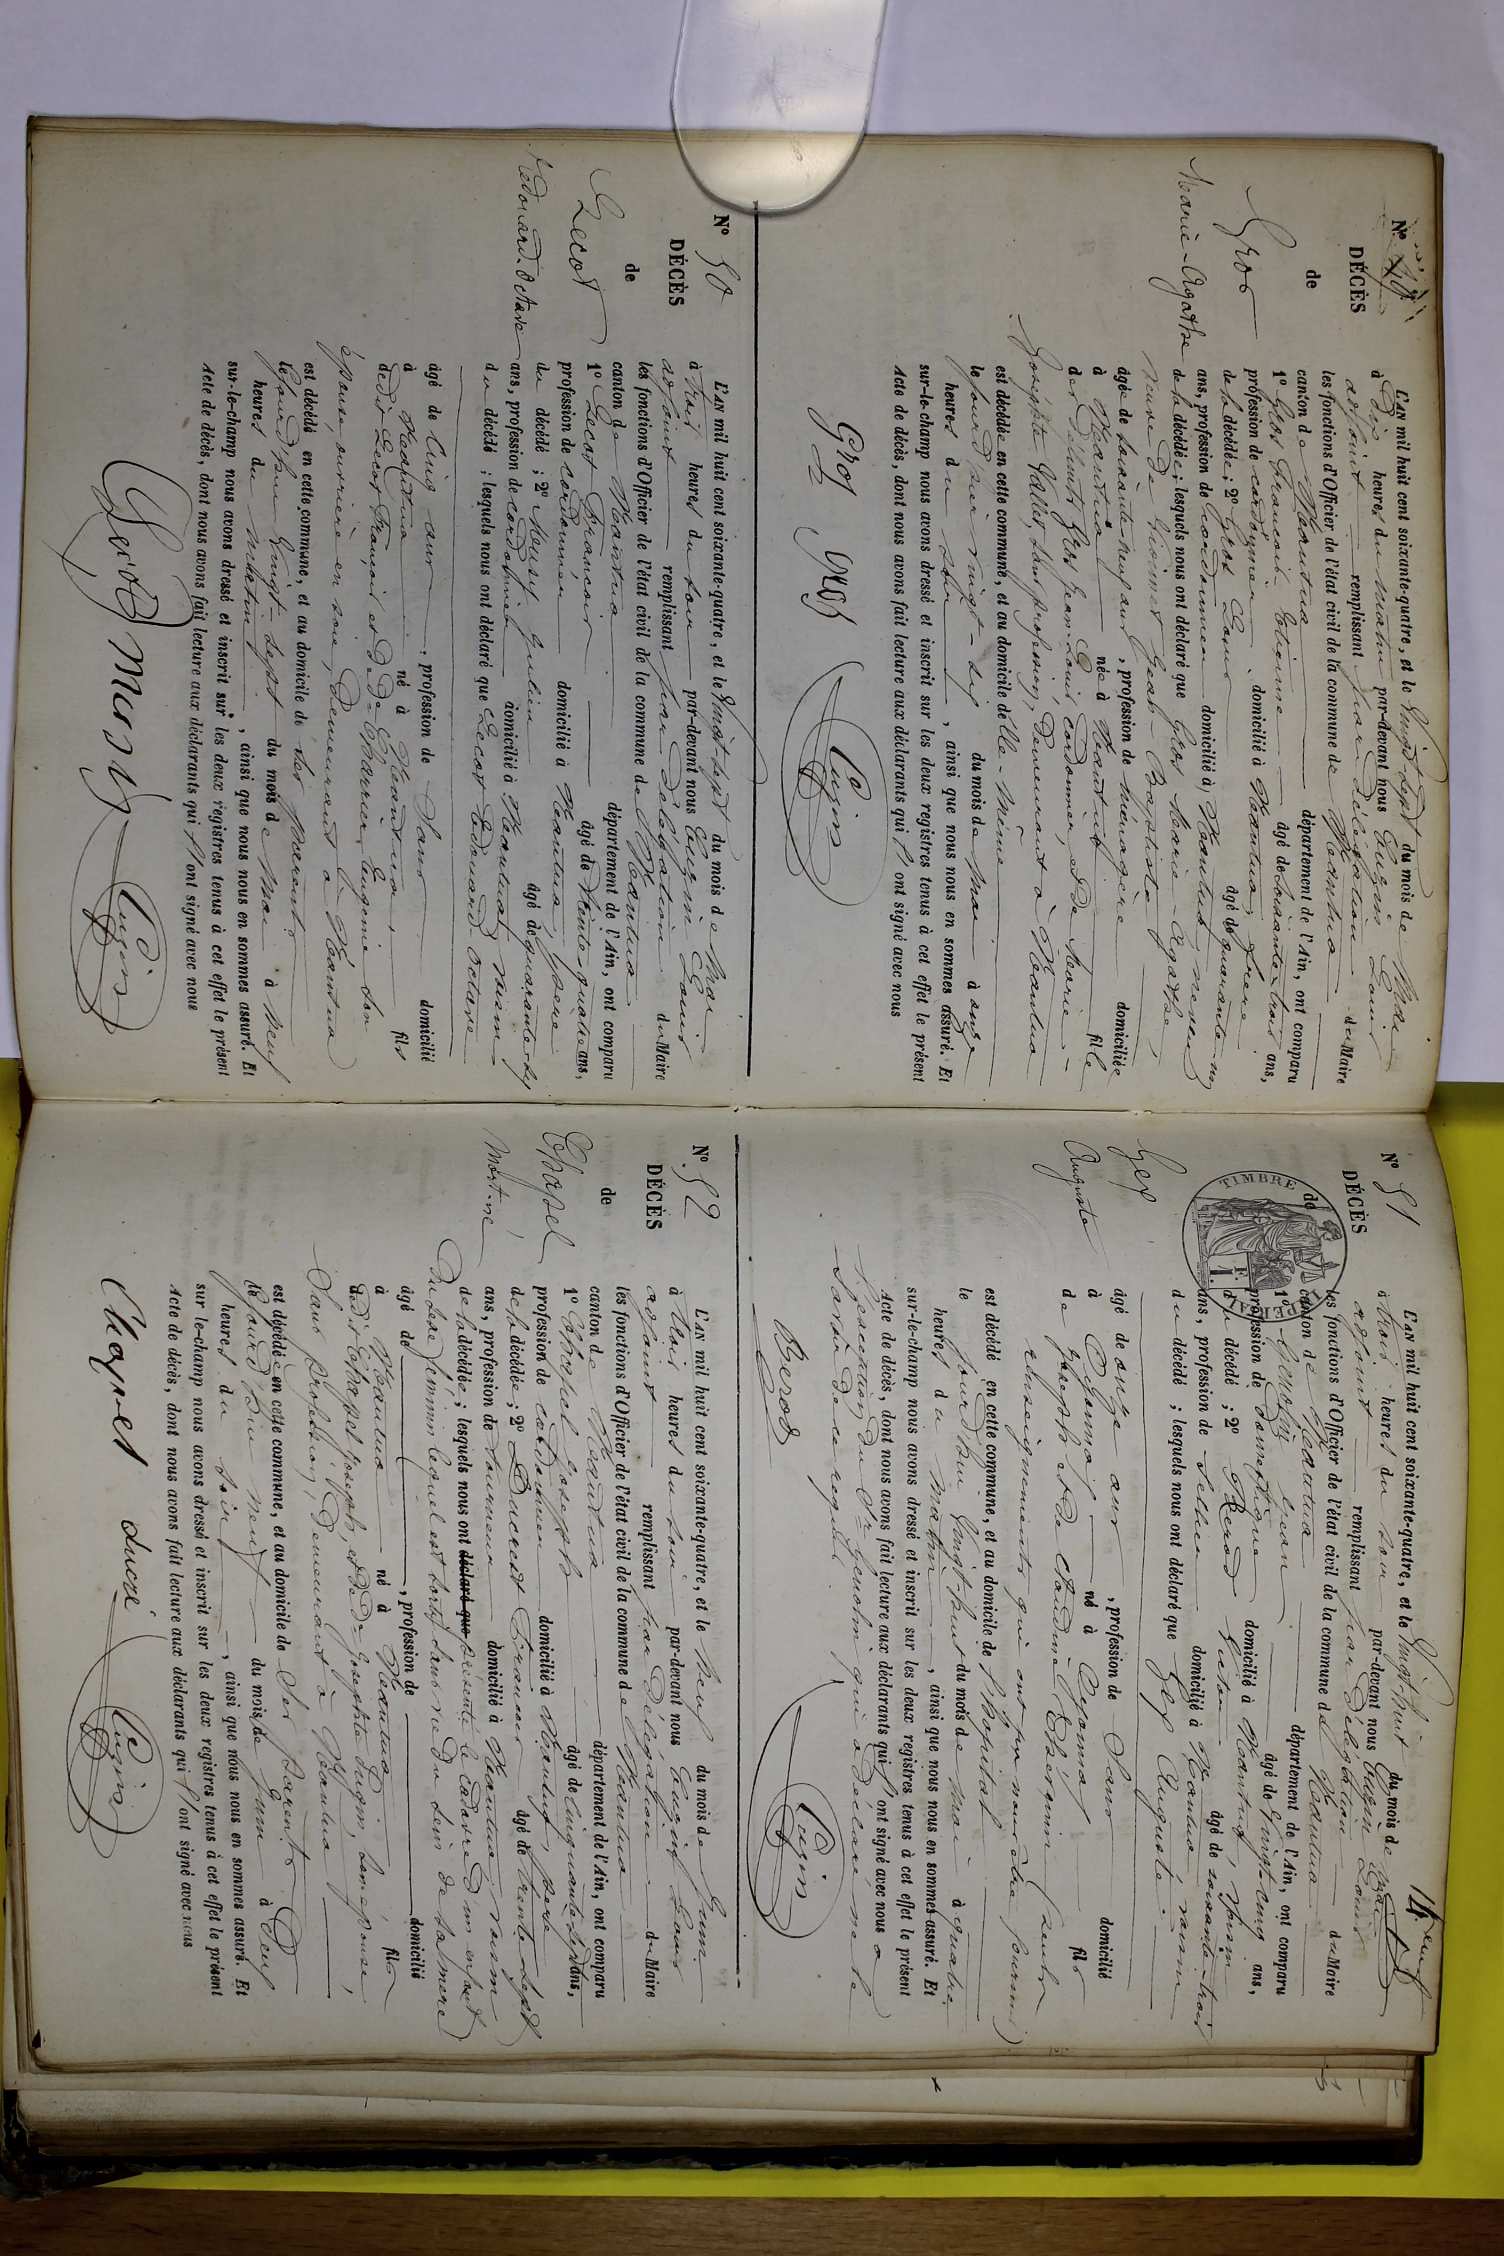 N° 49
DÉCÈS
de
Gros
Marie-Agathe
L'AN mil huit cent soixante-quatre, et le Vingt sept du mois de Mai
à Dix heures du matin par-devant nous Eugin Louis
adjoint remplissant par délégation du Maire
les fonctions d'Officier de l'état civil de la commune de Nantua
canton de Nantua département de l'Ain, ont comparu
1° Gros François Etienne âgé de soixante trois ans,
profession de cordonnier, domicilié à Nantua, frère
de la décédée; 2° Gros Louis âgé de quarante un
ans, profession de cordonnier domicilié à Nantua, neveu
de la décédée; lesquels nous ont déclaré que Gros Marie Agathe,
veuve de Jean Baptiste
âgée de soixante neuf ans, profession de ménagère domiciliée
à Nantua née à Nantua fille
des défunts Gros cordonnier, et de Marie
Josephte Vallet, sans profession, demeurant à Nantua
est décédée en cette commune, et au domicile d'elle-même
le jourd'hier vingt-six du mois de mai à onze
heures du soir, ainsi que nous nous en sommes assuré. Et
sur-le-champ nous avons dressé et inscrit sur les deux registres tenus à cet effet le présent
Acte de décès, dont nous avons fait lecture aux déclarants qui l'ont signé avec nous
Gros Gros Eugin
N° 50
DÉCÈS
de
Lecot
Edouard-Octave
L'AN mil huit cent soixante-quatre, et le Vingt sept du mois de Mai
à trois heures du soir par-devant nous Eugin Louis
adjoint remplissant par délégation du Maire
les fonctions d'Officier de l'état civil de la commune de Nantua
canton de Nantua département de l'Ain, ont comparu
1° Lecot François âgé de trente quatre ans,
profession de cordonnier domicilié à Nantua, père
du décédé; 2° Julien âgé de quarante six
ans, profession de cordonnier domicilié à Nantua, voisin
du décédé; lesquels nous ont déclaré que Lecot Edouard Octave
âgé de cinq ans, profession de sans domicilié
à Nantua né à Nantua, fils
dudit Lecot François et de Eugenie son
épouse, ouvrière en soie, demeurant à Nantua
est décédé en cette commune, et au domicile de ses parents
le jourd'hui vingt sept du mois de Mai à neuf
heures du matin, ainsi que nous nous en sommes assuré. Et
sur-le-champ nous avons dressé et inscrit sur les deux registres tenus à cet effet le présent
Acte de décès, dont nous avons fait lecture aux déclarants qui l'ont signé avec nous
Eugin
14
N° 51
DÉCÈS
de
Gex
Auguste
TIMBRE IMPERIAL
1 F.
L'AN mil huit cent soixante-quatre, et le Vingt-huit du mois de Mai
à trois heures du soir par-devant nous Eugin Louis
adjoint remplissant par délégation du Maire
les fonctions d'Officier de l'état civil de la commune de Nantua
canton de Nantua département de l'Ain, ont comparu
1° Jean âgé de vingt-cinq ans,
profession de domestique domicilié à Nantua, voisin
du décédé; 2° Berod âgé de soixante-trois
ans, profession de sellier domicilié à Nantua, voisin
du décédé; lesquels nous ont déclaré que Gex Auguste
âgé de onze ans, profession de sans domicilié
à Oyonnax né à Oyonnax fils
de Joseph et de Claudine (seuls
renseignements qui ont pu nous être fournis)
est décédé en cette commune, et au domicile de l'hôpital
le jourd'hui vingt-huit du mois de mai à quatre
heures du matin, ainsi que nous nous en sommes assuré. Et
sur-le-champ nous avons dressé et inscrit sur les deux registres tenus à cet effet le présent
Acte de décès, dont nous avons fait lecture aux déclarants qui l'ont signé avec nous à
l'exception du Sr qui a déclaré ne le
savoir de ce requis.
Berod Eugin
N° 52
DÉCÈS
de
Chapel
Mort-né
L'AN mil huit cent soixante-quatre, et le neuf du mois de Juin
à trois heures du soir par-devant nous Eugin Louis
adjoint remplissant par délégation du Maire
les fonctions d'Officier de l'état civil de la commune de Nantua
canton de Nantua département de l'Ain, ont comparu
1° Chapel Joseph âgé de cinquante sept ans,
profession de cordonnier domicilié à Nantua, père
de la décédée; 2° Ducret François âgé de trente sept
ans, profession de tourneur domicilié à Nantua, voisin
de la décédée; lesquels nous ont déclaré que présenté le cadavre d'un enfant
du sexe féminin lequel est sorti sans vie du sein de sa mère
âgé de , profession de domicilié
à Nantua né à Nantua fils
dudit Chapel Joseph, et de Josephte Eugin, son épouse,
sans profession, demeurant à Nantua
est décédée en cette commune, et au domicile de ses parents
le jourd'hui neuf du mois de Juin à deux
heures du soir, ainsi que nous nous en sommes assuré. Et
sur le-champ nous avons dressé et inscrit sur les deux registres tenus à cet effet le présent
Acte de décès, dont nous avons fait lecture aux déclarants qui l'ont signé avec nous
Chapel ducré Eugin